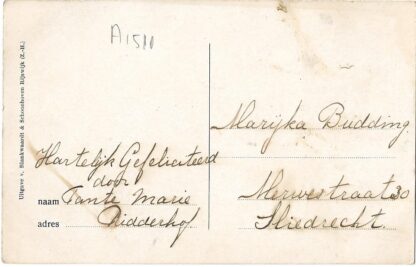 A1510
Uitgave v. Blankwaardt & Schoonhoven Rijswijk (Z.-H.)
Hartelijk Gefeliciteerd
door
naam Tante Marie
adres Ridderhof
Marijka Budding
Merwestraat 30
Sliedrecht.